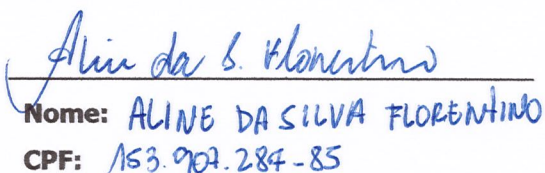 Aline da S. Florentino
Nome: ALINE DA SILVA FLORENTINO
CPF: 153.907.284-85